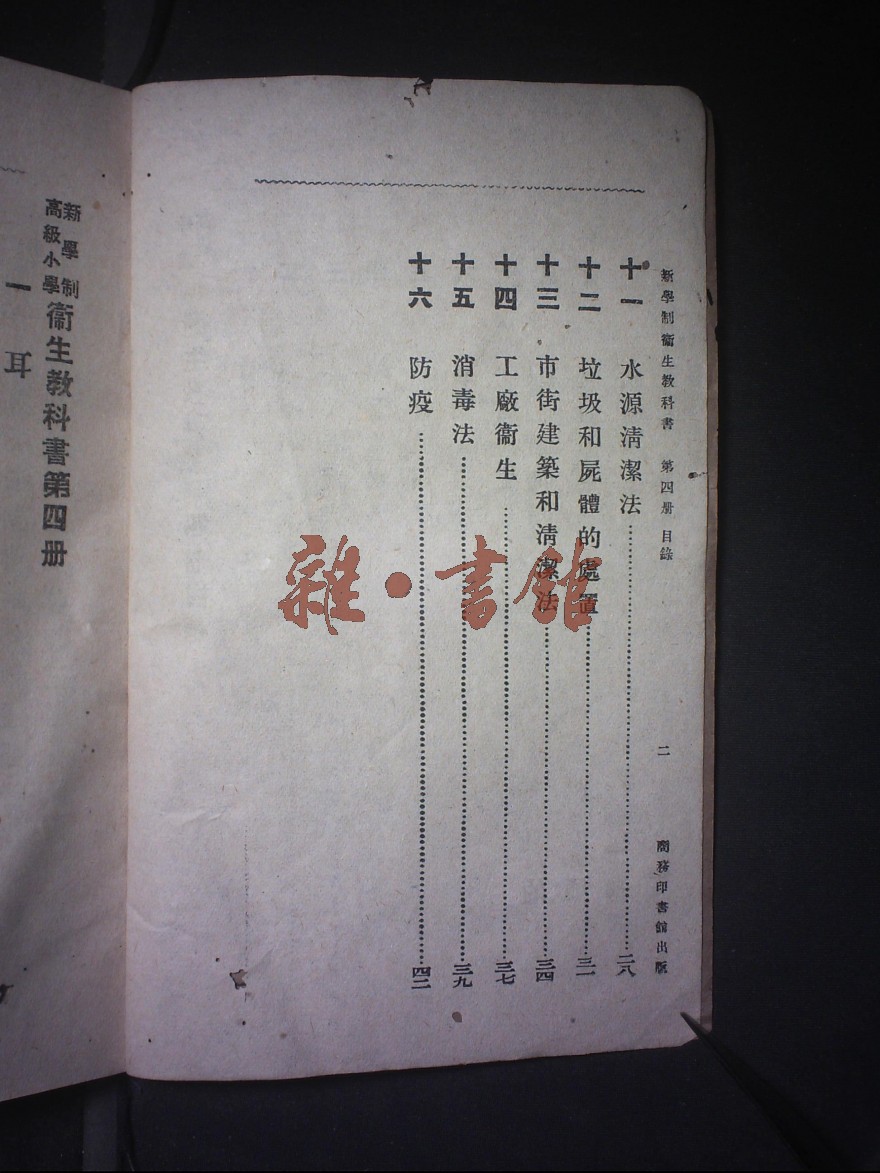 新學制衞生教科書 第四册 目錄 二 商務印書館出版
十一 水源淸潔法 二八
十二 垃圾和屍體的處置 三一
十三 市街建築和淸潔法 三四
十四 工廠衞生 三七
十五 消毒法 三九
十六 防疫 四二
新學制
高級小學
衞生教科書第四册
一 耳
雜·書館